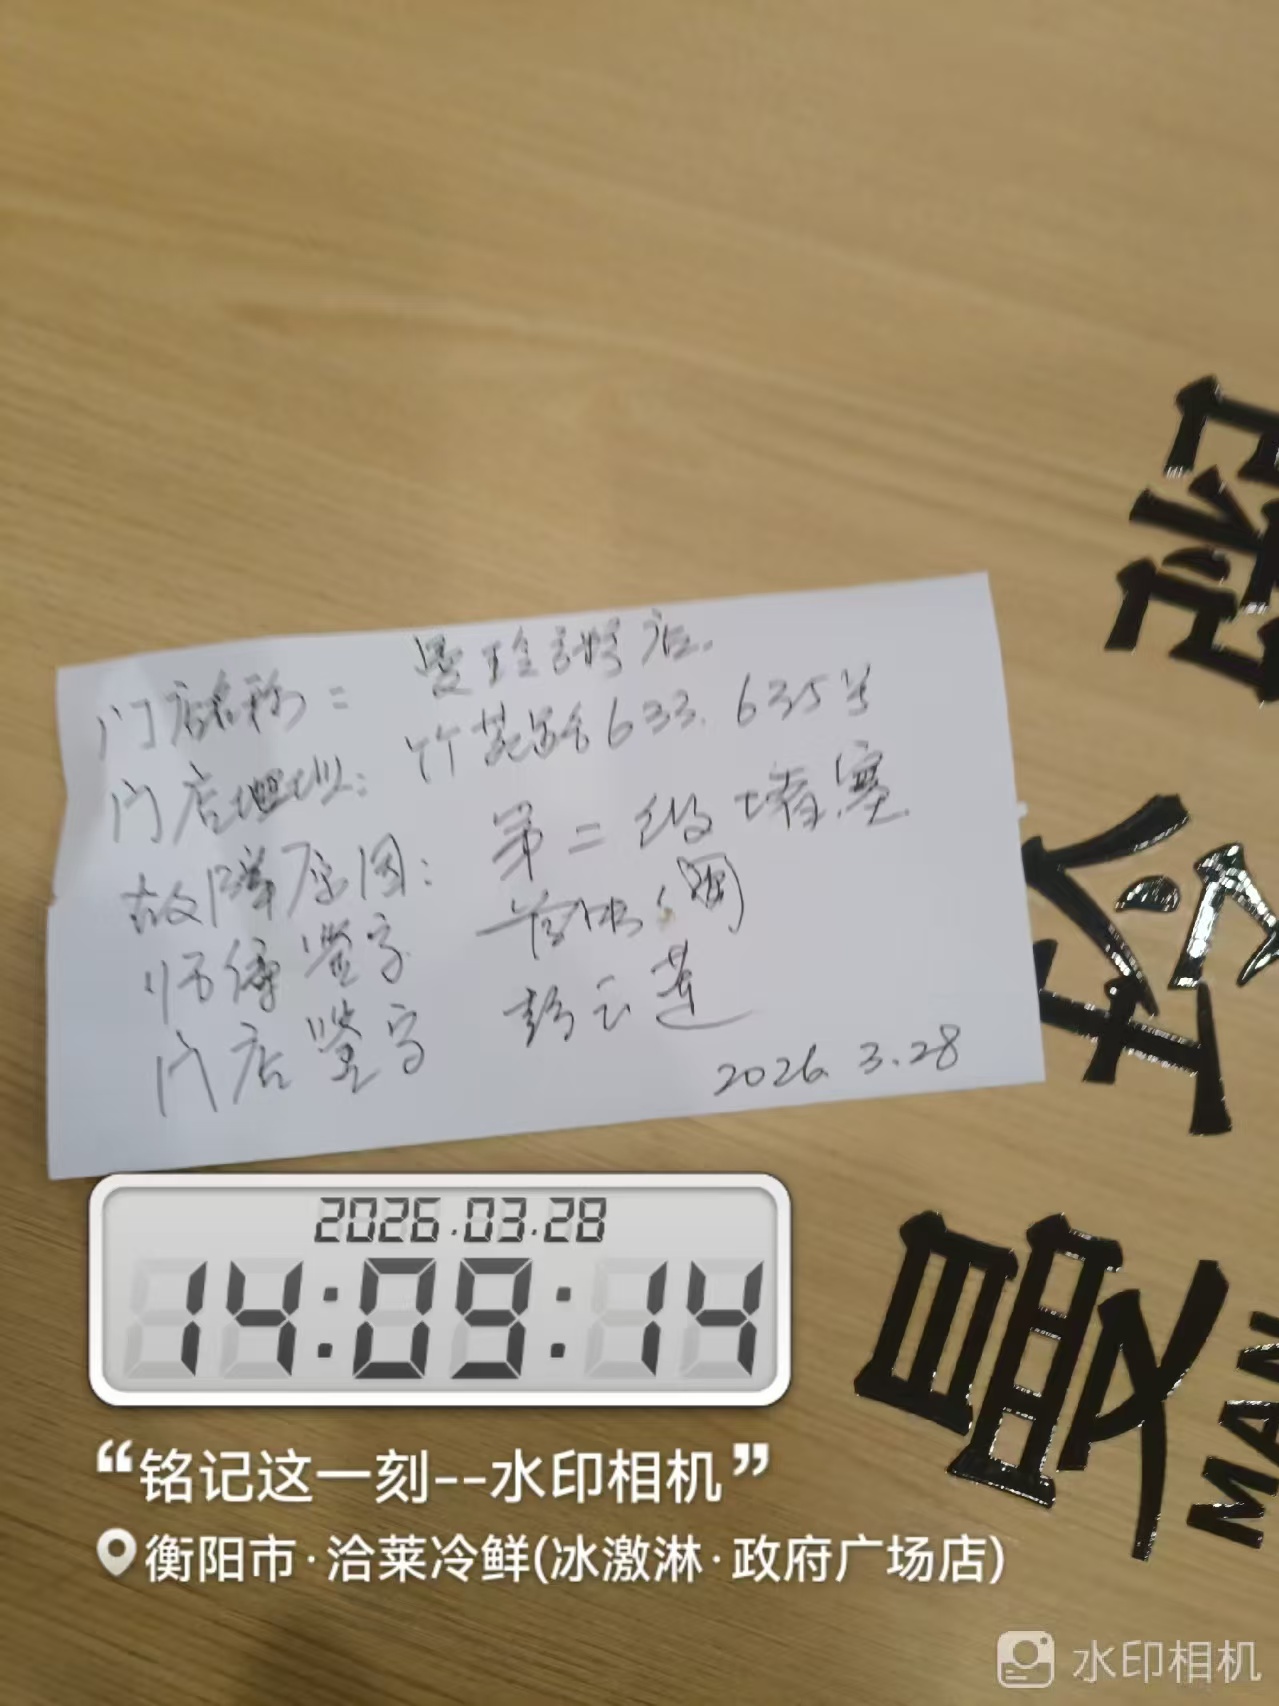 门店名称: 曼玲粥店.
门店地址: 竹苑路633. 635号
故障原因: 第二级堵塞
师傅签字
门店签字 彭云莲
2026. 3.28
粥
玲
曼
MAN
2026.03.28
14:09:14
“铭记这一刻--水印相机”
衡阳市·洽莱冷鲜(冰激淋·政府广场店)
水印相机